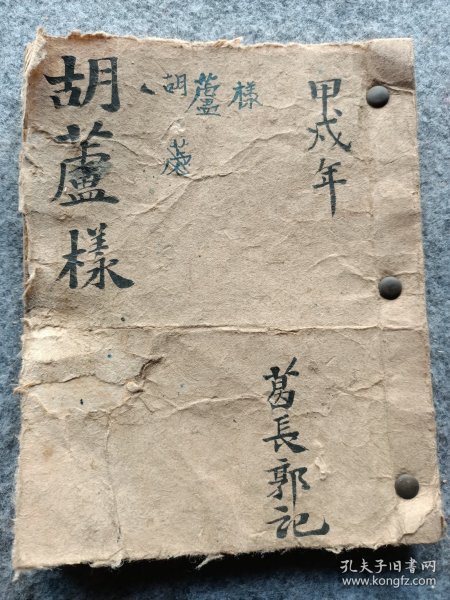 甲戍年
葛長郭記
胡蘆樣
蘆
胡蘆樣
孔夫子旧书网
www.kongfz.com